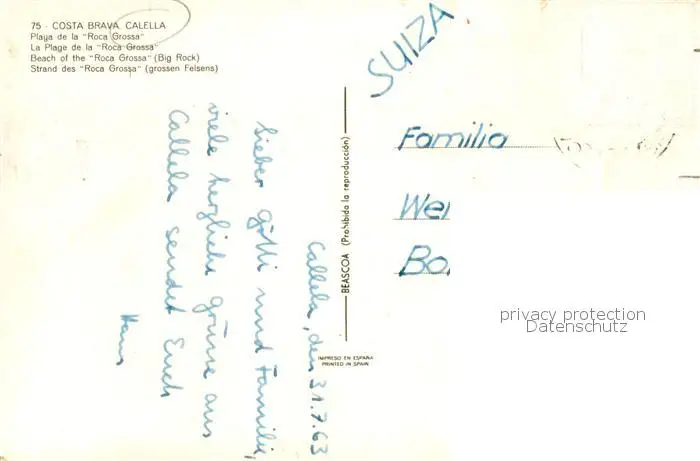 75 - COSTA BRAVA. CALELLA
Playa de la "Roca Grossa"
La Plage de la "Roca Grossa"
Beach of the "Roca Grossa" (Big Rock)
Strand des "Roca Grossa" (grossen Felsens)
Callela, den 31.7.63
Lieber Götti und Familie,
viele herzliche Grüsse aus
Callela sendet Euch
Hans
BEASCOA (Prohibida la reproducción)
IMPRESO EN ESPAÑA
PRINTED IN SPAIN
SUIZA
Familia
Wei
Bo
privacy protection
Datenschutz